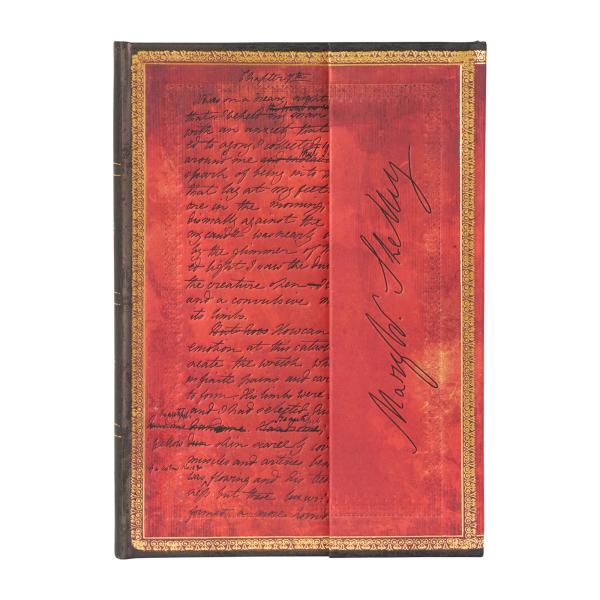 Chapter 7th
It was on a dreary night
that I beheld my man
with an anxiety that
ed to agony I collected
around me
spark of being into
that lay at my feet
one in the morning,
dismally against the
my candle was nearly
by the glimmer of
ed light I saw the du
the creature open
and a convulsive m
its limbs.
But how How can
emotion at this catas
create the wretch wh
infinite pains and car
to form. His limbs were
and I had selected
beautiful handsome. Handsome
skin scarcely co
muscles and arteries bea
was flowing and his
but these luxuri
formed a more
Mary W. Shelley